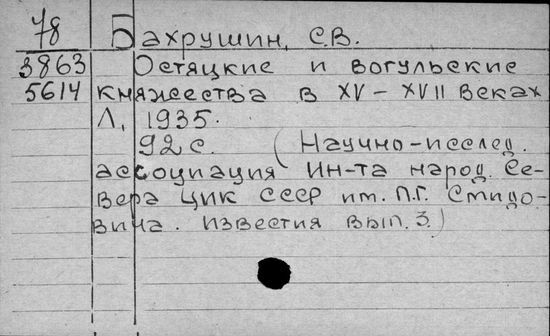 78 Бахрушин, С.В.
3863 Остяцкие и вогульские
5614 княжества в XV – XVII веках
Л, 1935.
92 с. (Научно-исслед.
ассоциация Ин-та народ. Се-
вера ЦИК СССР им. П.Г. Смидо-
вича. Известия вып. 3.)